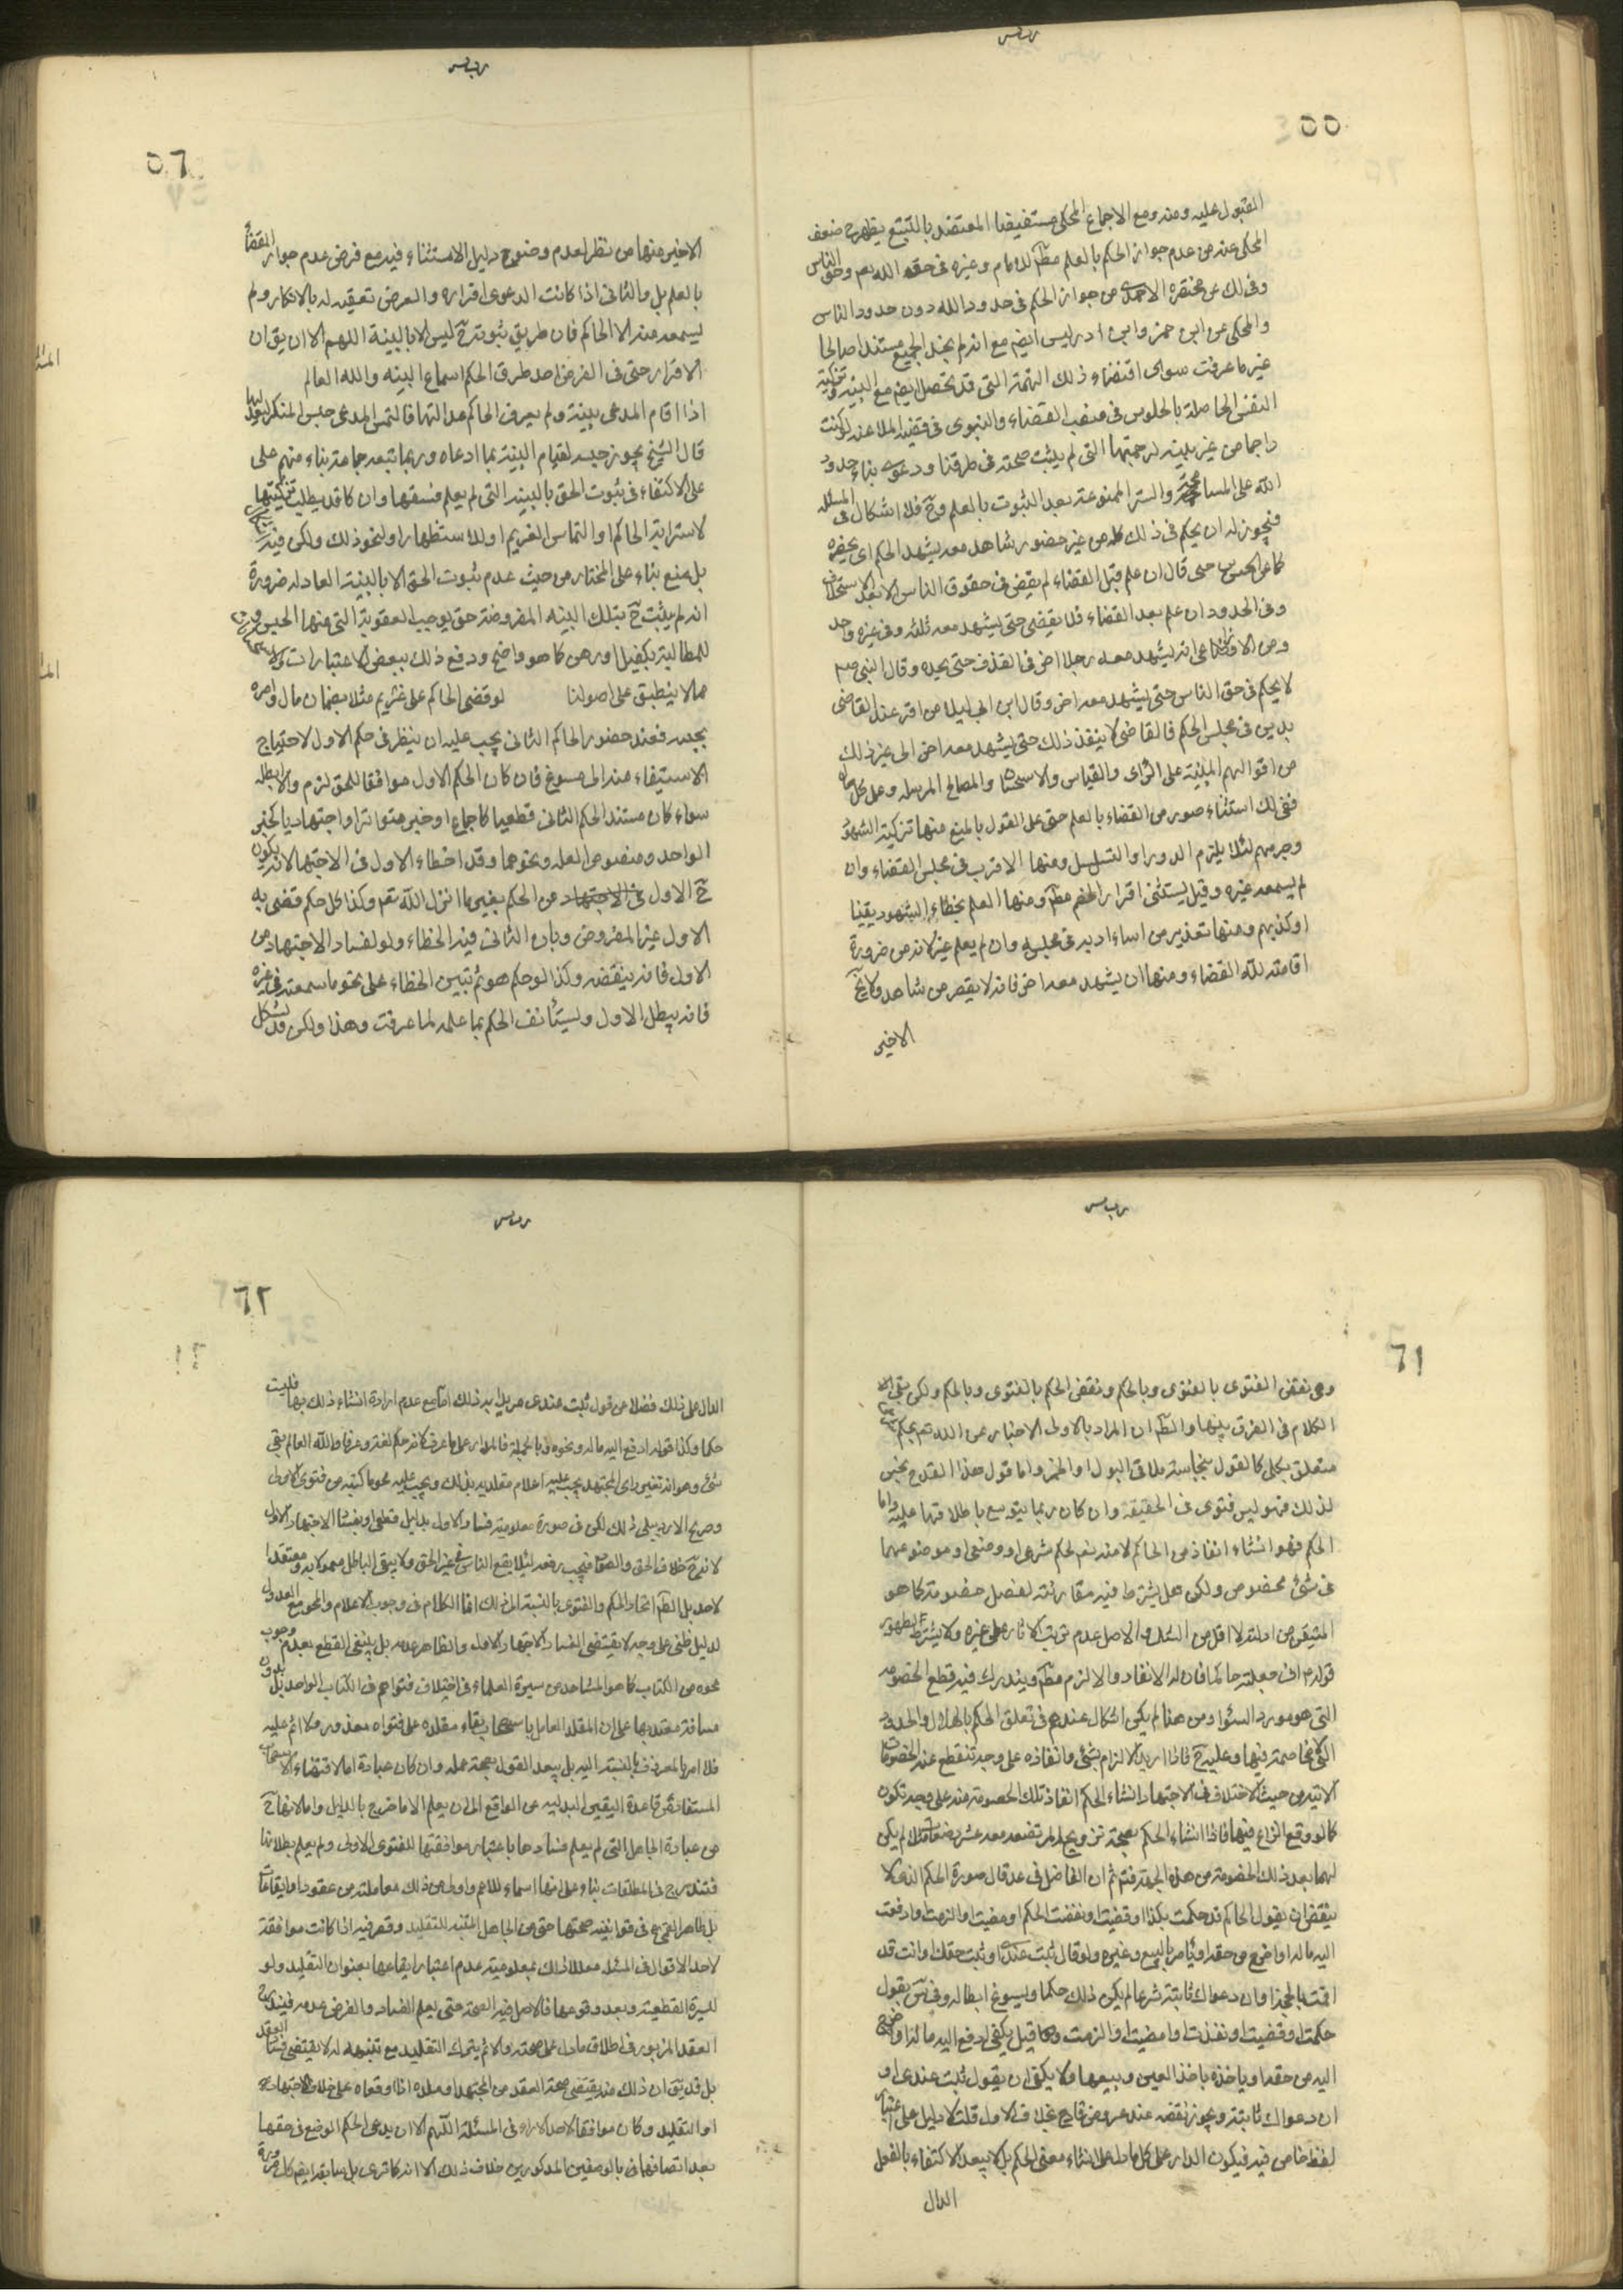 ٥٥
القبول عليه ومنه ومع الاجماع المحكى مستفيضا المعتضد بالتتبع يظهر ح ضعف
المحكى عنه من عدم جواز الحكم بالعلم مطلقا للامام وغيره فى حقه الله تعم وحق الناس
وفى لك عن مختصره الاحمدى من جواز الحكم فى حدود الله دون حدود الناس
والمحكى عن ابن حمزه وابن ادريس ايضم مع انه لم نجد للجميع مستندا صالحا
غير ما عرفت سوى اقتضاء ذلك التهمة التى قد تحصل ايضم مع البينه و تزكية
النفس الحاصلة بالجلوس فى منصب القضاء والنبوى فى قضيه الملاعنه لو كنت
راجما من غير بينة لرجمتها التى لم يثبت صحته فى طرقنا ودعوى بناء حدود
الله على المسامحة والستر الممنوعة بعد الثبوت بالعلم وح فلا اشكال فى المسئله
فيجوز له ان يحكم فى ذلك كله من غير حضور شاهد معه يشهد الحكم اى يحضره
كما عن الحسن حى قال ان علم قبل القضاء لم يقض فى حقوق الناس الا بعد الاستحلاف
وفى الحدود ان علم بعد القضاء فلا يقضى حتى يشهد معه ثلثه وفى غيره واحد
وعن الاوزاعى انه يشهد معه رجلا اخر فى القذف حتى يحده وقال
لا يحكم فى حق الناس حتى يشهد معه اخر وقال ابن ابى ليلى من اقر عند القاضى
بدين فى مجلس الحكم فالقاضى لا ينفذ ذلك حتى يشهد معه اخر الى غير ذلك
من اقوالهم المبنية على الراى والقياس والاستحسان والمصالح المرسله وعلى كل حال
ففى لك استثناء صور من القضاء بالعلم حتى على القول بالمنع منها تزكية الشهود
وجرحهم لئلا يلزم الدور او التسلسل ومنها الاقرار فى مجلس القضاء وان
لم يسمعه غيره وقيل يستثنى اقرار الخصم مطلقا ومنها العلم بخطاء الشهود يقينا
او كذبهم ومنها تعذير من اساء ادبه فى مجلسه وان لم يعلم غيره لانه من ضرورة
اقامته لله القضاء ومنها ان يشهد معه اخر فانه لا يقصر عن شاهد ولا يخ
الاخير
٥٦
الاخير منها من نظر لعدم وضوح دليل الاستثناء فيه مع فرض عدم جواز القضاء
بالعلم بل والثانى اذا كانت الدعوى اقراره والفرض تعقبه له بالانكار ولم
يسمعه منه الا الحاكم فان طريق ثبوته ح ليس الا بالبينة اللهم الا ان يق ان
الاقرار حتى فى الفرض احد طرق الحكم اسماع البينه والله العالم
اذا اقام المدعى بينة ولم يعرف الحاكم عدالتها فالتمس المدعى حبس المنكر ليعدلها
قال الشيخ يجوز حبسه لقيام البينة بما ادعاه وربما تبعه جماعة بناء منهم على
على الاكتفاء فى ثبوت الحق بالبينه التى لم يعلم فسقها وان كان قد يطلب تزكيتها
لاسترابة الحاكم او التماس الغريم او للاستظهار او لنحو ذلك ولكن فيه
بل منع بناء على المختار من حيث عدم ثبوت الحق الا بالبينة العادله ضرورة
انه لم يثبت ح بتلك البينه المفروضة حق يوجب العقوبة التى منها الحبس
للمطالبة بكفيل او رهن كما هو واضح ودفع ذلك ببعض الاعتبارات
مما لا ينطبق على اصولنا لو قضى الحاكم على غريم مثلا بضمان مال وامره
بحبسه فعند حضور الحاكم الثانى يجب عليه ان ينظر فى حكم الاول لاحتياج
الاستيفاء منه الى مسوغ فان كان الحكم الاول موافقا للحق لزم والا ابطله
سواء كان مستند الحكم الثانى قطعيا كاجماع او خبر متواتر او اجتهاديا كخبر
الواحد ومنصوص العله ونحوهما وقد اخطاء الاول فى الاجتهاد لانه يكون
ح الاول فى الاجتهاد من الحكم بغير ما انزل الله تعم وكذا كل حكم قضى به
الاول غير المفروض وبان الثانى فيه الخطاء ولو لفساد الاجتهاد من
الاول فانه ينقضه وكذا لو حكم هو ثم تبين الخطاء على نحو ما سمعته فى غيره
فانه يبطل الاول ويستأنف الحكم بما علمه لما عرفت وهذا ولكن قد يشكل
٦١
وهى نقض الفتوى بالفتوى وبالحكم ونقض الحكم بالفتوى وبالحكم ولكن بقى
الكلام فى الفرق بينهما والظم ان المراد بالاولى الاخبار عن الله تعم بحكم
متعلق بكلى كالقول بنجاسة ملاقى البول او الخمر واما قول هذا القدح نجس
لذلك فهو ليس فتوى فى الحقيقة وان كان ربما يتوسع باطلاقها عليه واما
الحكم فهو انشاء انفاذ من الحاكم لا منه تعم لحكم شرعى او وضعى او موضوعهما
فى شئ مخصوص ولكن هل يشترط فيه مقارنته لفصل خصومة كما هو
المتيقن من ادلته لا اقل من الشك والاصل عدم ترتب الاثار على غيره او لا يشترط لظهور
قوله م انى جعلته حاكما فان له الانفاذ والالزم مطلقا ويندرج فيه قطع الخصومه
التى هو مورد السئوال ومن هنا لم يكن اشكال عندهم فى تعلق الحكم بالهلال والحدود
التى لا مخاصمة فيها وعليه ح فاذا اريد الالزام بشئ وانفاذه على وجه تنقطع عنه الخصومات
الاتيه من حيث الاختلاف فى الاجتهاد انشاء الحكم انفاذ تلك الخصومة منه على وجه تكون
كما لو وقع النزاع فيها فاذا انشاء الحكم بصحة تزويج امراة معه عشر رضعات مثلا لم يكن
لهما بعد ذلك الخصومة من هذه الجهة ثم ان الفاضل فى عد قال صورة الحكم الذى لا
ينقض ان يقول الحاكم قد حكمت بكذا او قضيت او نفذت الحكم او مضيت او الزمت او ادفعت
اليه ماله او اخرج من حقه او يأمر بالبيع وغيره ولو قال ثبت عندى او ثبت حقك او انت قد
اقمت بالحجه او ان دعواك ثابتة شرعا لم يكن ذلك حكما ويسوغ ابطاله وفى س يقول
حكمت او قضيت او نفذت او امضيت او الزمت وقيل يكفى ادفع اليه ماله او اخرج
اليه من حقه او ياخذه باخذ العين او بيعها ولا يكفى ان يقول ثبت عندى او
ان دعواك ثابتة ويجوز نقضه عند عروض قادح بخلاف الاول قلت لا دليل على اعتبار
لفظ خاص فيه فيكون المدار على كل ما دل على انشاء معنى الحكم بل لا يبعد الاكتفاء بالفعل
الدال
٦٢
الدال على ذلك فضلا عن قول ثبت عندى مريدا به ذلك اما مع عدم ارادة انشاء ذلك بها فليست
حكما وكذا قوله ادفع اليه ماله ونحوه وبالجملة فالمدار على ما عرف كانه حكم لغة وعرفا والله العالم بقى
شئ وهو انه تغير راى المجتهد يجب عليه اعلام مقلديه بذلك ويجب عليه محو ما كتبه من فتوى الاولى
وصرح الاردبيلى ذلك لكن فى صورة معلومية فساد الاول بدليل قطعى او بفساد الاجتهاد الاول
لانه ح خلاف الحق والصواب فيجب رفعه لئلا يقع الناس فى غير الحق ولا يبقى الباطل معمولا به ومعتقدا
لاحد بل الظم اتحاد الحكم والفتوى بالنسبة الى ذلك انما الكلام فى وجوب الاعلام والمحو مع العدول
لدليل ظنى على وجه لا يقتضى الفساد الاجتهاد الاول والظاهر عدمه بل ينبغى القطع بعدم وجوب
محوه من الكتاب كما هو المشاهد من سيرة العلماء فى اختلاف فتواهم فى الكتاب الواحد بل بدون
مسافة معتد بها على ان المقلد العامل باستصحاب بقاء مقلده على فتواه معذور ولا اثم عليه
فلا امر بالمعروف بالنسبة اليه بل يبعد القول بصحة عمله وان كان عبادة اما لاقتضاء الاستصحاب
المستفاد من قاعدة اليقين البدليه عن الواقع الى ان يعلم الا ما خرج بالدليل واما لانها ح
من عبادة الجاهل التى لم يعلم فسادها باعتبار موافقتها للفتوى الاولى ولم يعلم بطلانها
فتندرج فى المطلقات بناء على انها اسماء للاعم واولى من ذلك معاملته من عقود او ايقاعات
بل ظاهر القمى فى قوانينه صحتها حتى من الجاهل المتنبه للتقليد وقصر فيه اذا كانت موافقة
لاحد الاقوال فى المسئله معللا ذلك بمعلومية عدم اعتبار ايقاعها بعنوان التقليد ولو
للسيرة القطعية وبعد وقوعها فالاصل فيه الصحة حتى يعلم الفساد والفرض عدمه فيندرج
العقد المزبور فى اطلاق ما دل على صحته والاثم بترك التقليد مع تنبهه له لا يقتضى فساد العقد
بل قد يق ان ذلك منه يقتضى صحة العقد من المجتهد او مقلده اذا اوقعاه على خلاف الاجتهاد
او التقليد وكان موافقا لاحد الاراء فى المسئلة اللهم الا ان يدعى الحكم الوضعى فى حقهما
بعد اتصافهما بالوصفين المذكورين خلاف ذلك الا انه كما ترى بل سابقه ايضم كذلك